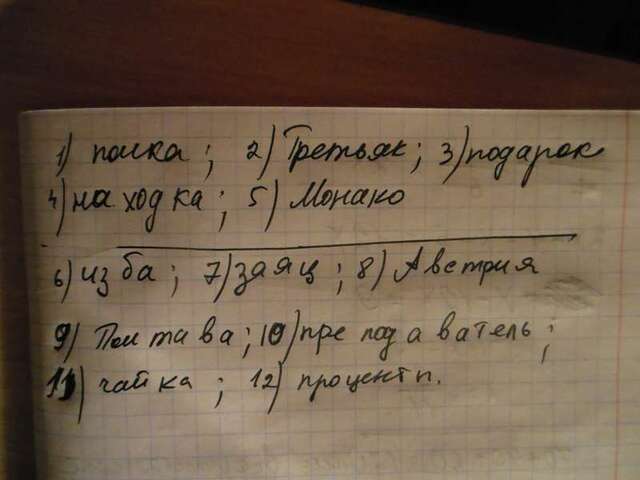 1) полка; 2) Третьяк; 3) подарок
4) находка; 5) Монако
6) изба; 7) заяц; 8) Австрия
9) Полтава; 10) преподаватель;
11) чайка; 12) процент п.